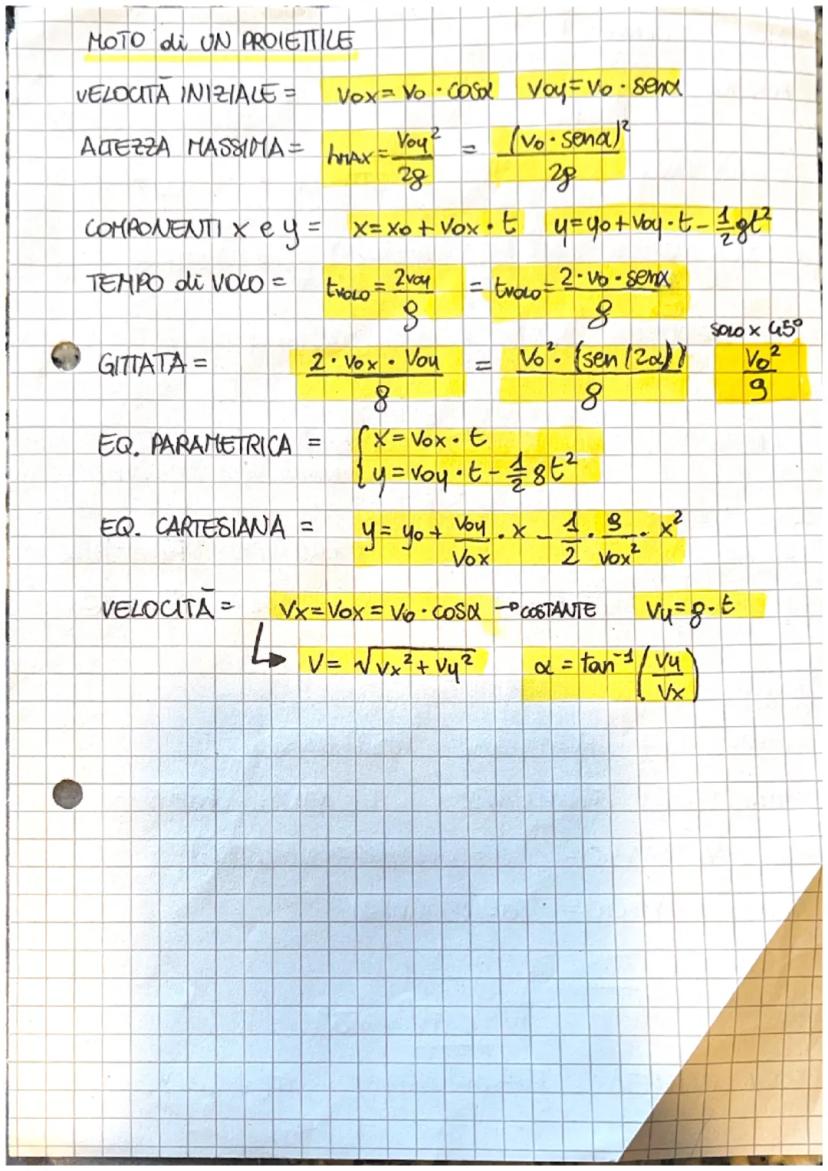 MOTO di UN PROIETTILE
VELOCITÀ INIZIALE = Vox = Vo · cosα Voy = Vo · senα
ALTEZZA MASSIMA = hMAX = Voy²/2g = (Vo · senα)²/2g
COMPONENTI x e y = x = xo + Vox · t y = yo + Voy · t - 1/2 gt²
TEMPO di VOLO = tvolo = 2voy/g = tvolo = 2 · vo · senα/g
SOLO x 45°
GITTATA = 2 · Vox · Voy/g = Vo² · (sen(2α))/g Vo²/g
EQ. PARAMETRICA = { x = Vox · t
y = voy · t - 1/2 gt²
EQ. CARTESIANA = y = yo + Voy/Vox · x - 1/2 · g/Vox² · x²
VELOCITÀ = Vx = Vox = Vo · cosα → COSTANTE Vy = g · t
↳ V = √Vx² + Vy² α = tan⁻¹ (Vy/Vx)